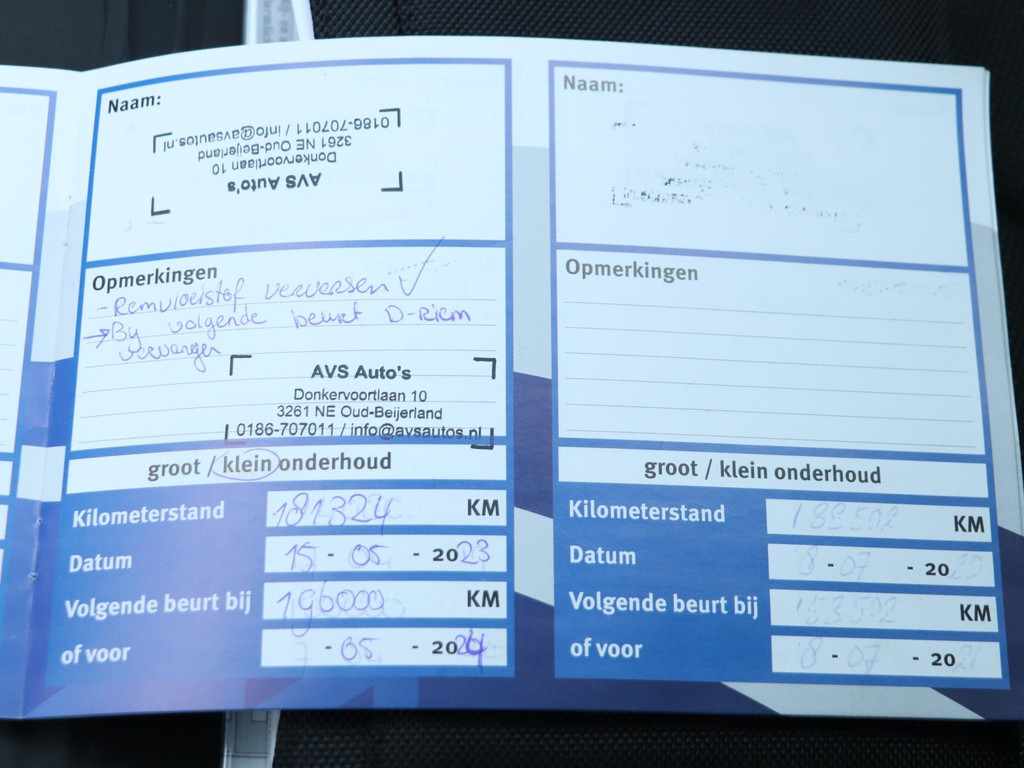 Naam:
AVS Auto's
Donkervoortlaan 10
3261 NE Oud-Beijerland
0186-707011 / info@avsautos.nl
Opmerkingen
- Remvloeistof verversen ✓
→ By volgende beurt D-Riem
vervangen
AVS Auto's
Donkervoortlaan 10
3261 NE Oud-Beijerland
0186-707011 / info@avsautos.nl
groot / klein onderhoud
Kilometerstand 181324 KM
Datum 15 - 05 - 2023
Volgende beurt bij 196000 KM
of voor - 05 - 2024
Naam:
Opmerkingen
groot / klein onderhoud
Kilometerstand KM
Datum 8 - 07 - 20
Volgende beurt bij KM
of voor 8 - 07 - 20